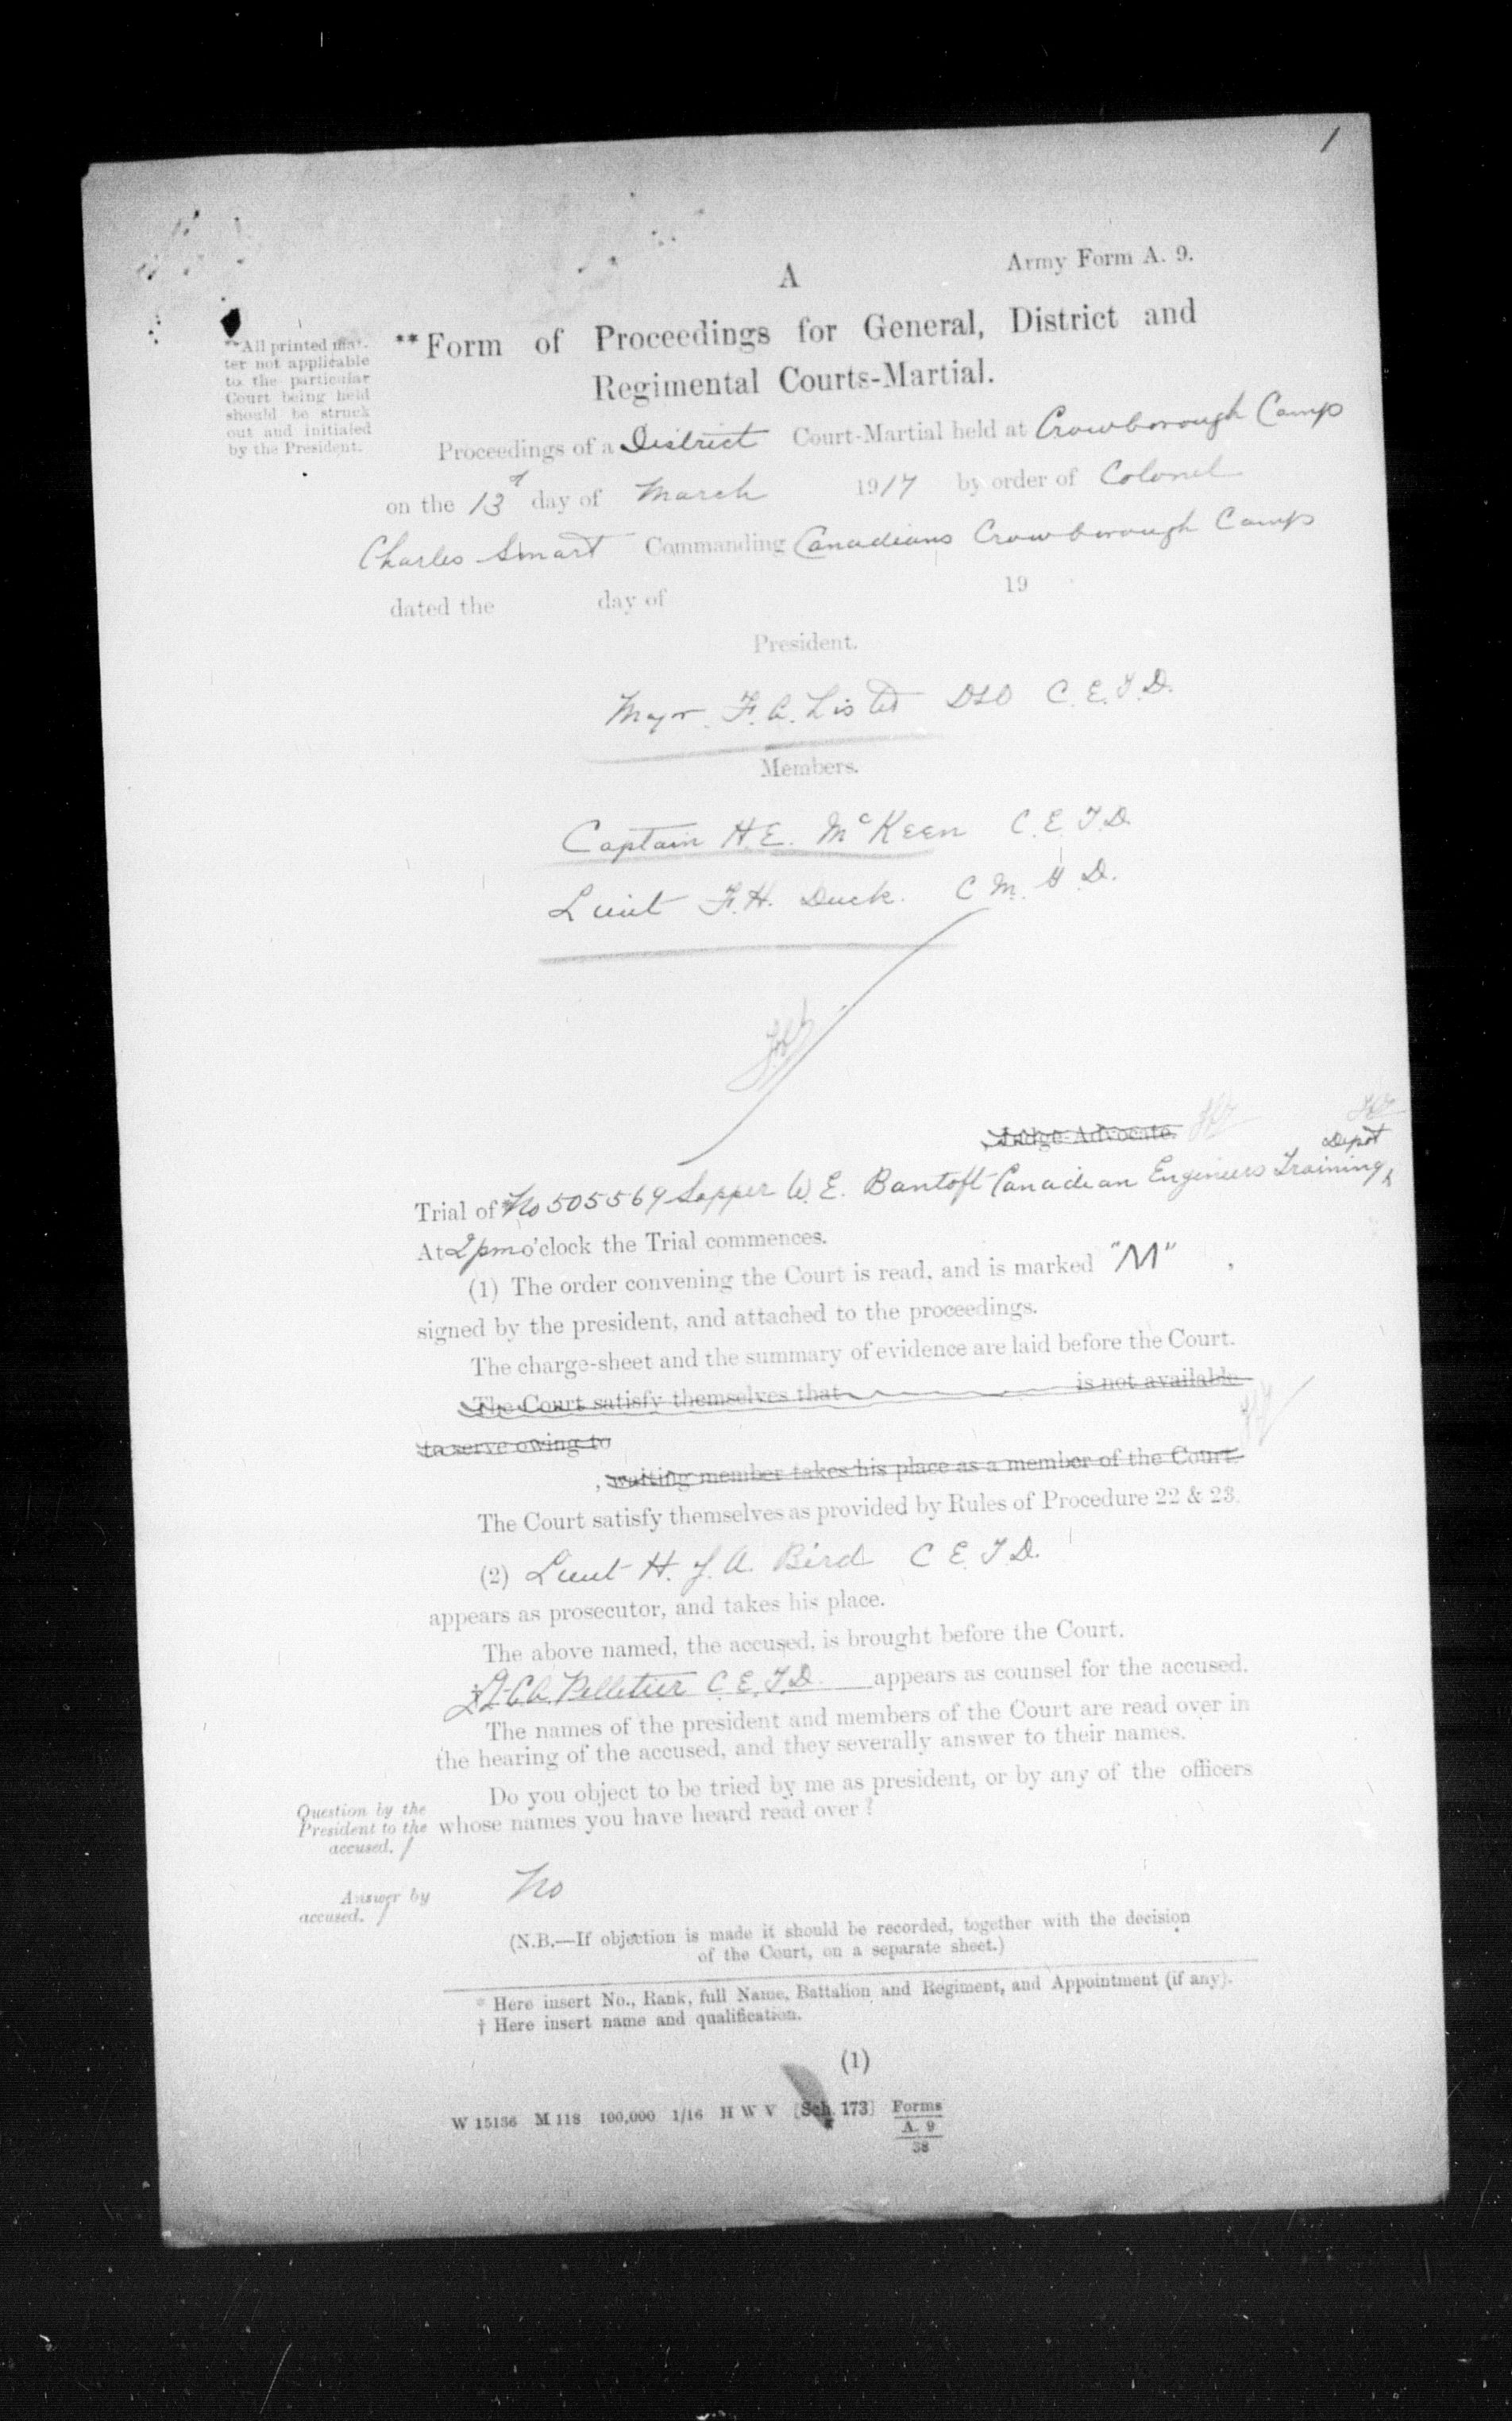 1
A
Army Form A. 9.
**Form of Proceedings for General, District and
Regimental Courts-Martial.
**All printed mat-
ter not applicable
to the particular
Court being held
should be struck
out and initialed
by the President.
Proceedings of a District Court-Martial held at Crowborough Camp
on the 13 day of March 1917 by order of Colonel
Charles Smart Commanding Canadians Crowborough Camp
dated the day of 19
President.
Major. F. A. Lister DSO C.E.T.D.
Members.
Captain H.E. McKeen C.E.T.D.
Lieut F.H. Duck. C.M.G.D.
Judge-Advocate.
Depot
Trial of *No 505569 Sapper W.E. Bantoft Canadian Engineers Training
At 2pm o'clock the Trial commences.
(1) The order convening the Court is read, and is marked "M" ,
signed by the president, and attached to the proceedings.
The charge-sheet and the summary of evidence are laid before the Court.
The Court satisfy themselves that is not available
to serve owing to
, waiting member takes his place as a member of the Court.
The Court satisfy themselves as provided by Rules of Procedure 22 & 23.
(2) Lieut H. J. A. Bird C E T D.
appears as prosecutor, and takes his place.
The above named, the accused, is brought before the Court.
Lt C.A. Pelletier C.E.T.D. appears as counsel for the accused.
The names of the president and members of the Court are read over in
the hearing of the accused, and they severally answer to their names.
Question by the
President to the
accused.
Do you object to be tried by me as president, or by any of the officers
whose names you have heard read over?
Answer by
accused.
No
(N.B.—If objection is made it should be recorded, together with the decision
of the Court, on a separate sheet.)
* Here insert No., Rank, full Name, Battalion and Regiment, and Appointment (if any).
† Here insert name and qualification.
(1)
W 15136 M 118 100,000 1/16 H W V [Sch. 173] Forms
A. 9
38